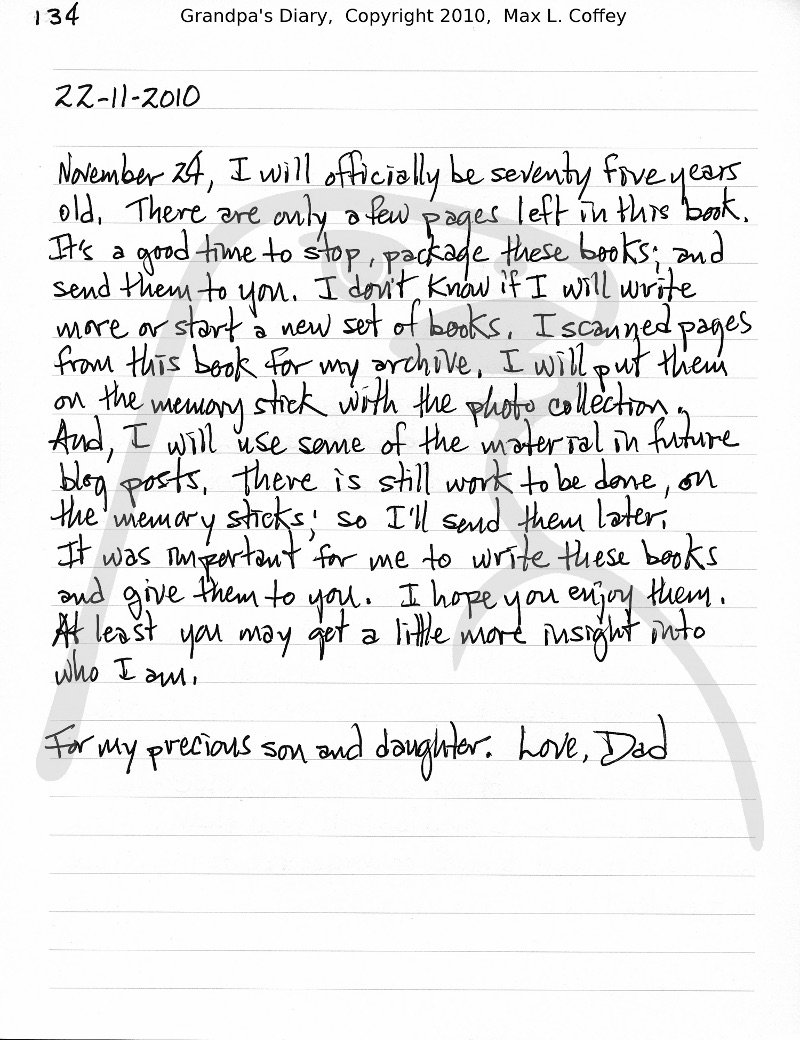 134
Grandpa's Diary, Copyright 2010, Max L. Coffey
22-11-2010
November 24, I will officially be seventy five years
old. There are only a few pages left in this book.
It's a good time to stop, package these books; and
send them to you. I don't know if I will write
more or start a new set of books. I scanned pages
from this book for my archive. I will put them
on the memory stick with the photo collection.
And, I will use some of the material in future
blog posts. There is still work to be done, on
the memory sticks; so I'll send them later.
It was important for me to write these books
and give them to you. I hope you enjoy them.
At least you may get a little more insight into
who I am.
For my precious son and daughter. Love, Dad